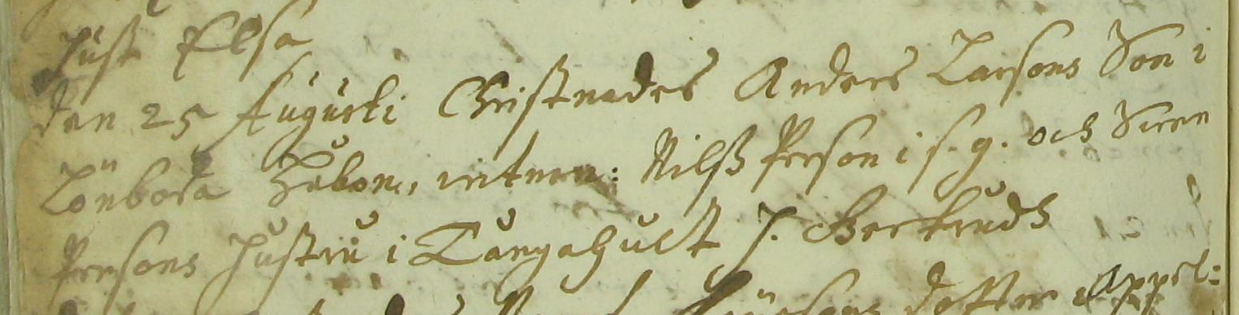 Hust Elsa
den 25 Augusti Christnades Anders Larsons Son i
Lönboda Håkon, witnen: Nilß Person i s. g. och Swen
Persons Hustru i Tångahult H. Bertrudh
dotter Appel=